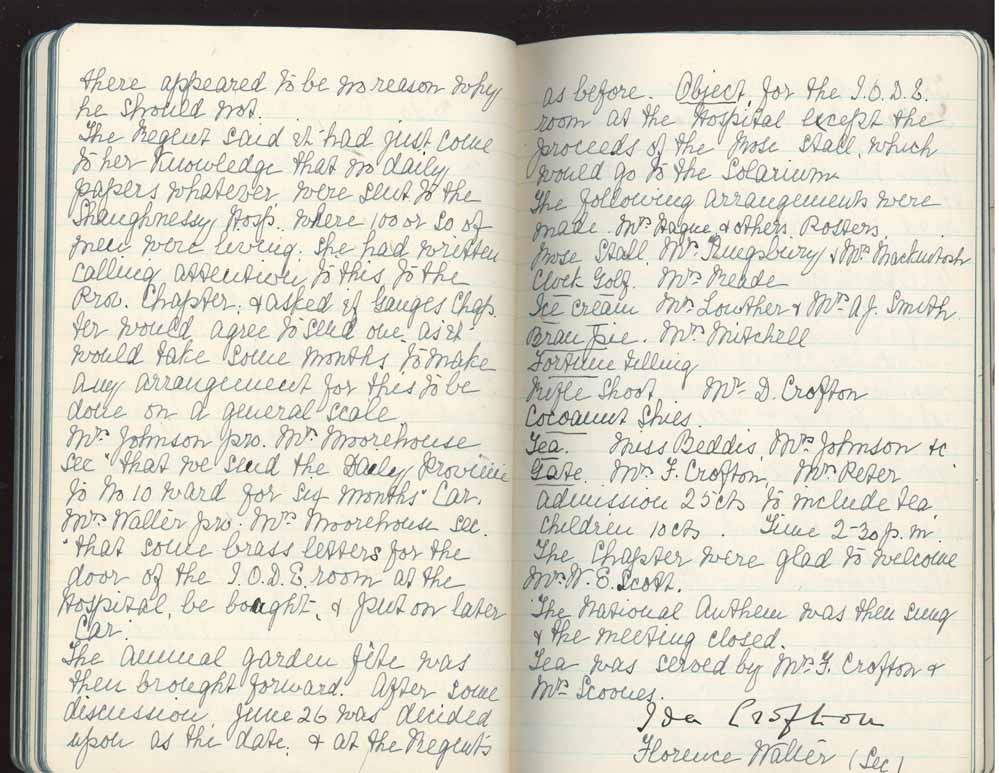 there appeared to be no reason why
he should not.
The Regent said it had just come
to her knowledge that no daily
papers whatever were sent to the
Shaughnessy Hosp. where 100 or so of
men were living. She had written
calling attention to this to the
Prov. Chapter. & asked if Ganges Chap-
ter would agree to send one. as it
would take some months to make
any arrangement for this to be
done on a general scale
Mrs Johnson pro. Mrs Moorehouse
sec "that we send the Daily Province
to No 10 ward for six months" Car.
Mrs Walter pro. Mrs Moorehouse sec.
"that some brass letters for the
door of the I.O.D.E. room at the
Hospital, be bought, & put on later
Car.
The annual garden fête was
then brought forward. After some
discussion, June 26 was decided
upon as the date. & at the Regent's
as before. Object, for the I.O.D.E.
room at the Hospital except the
proceeds of the Nose Stall, which
would go to the Solarium
The following arrangements were
made. Mrs Hague & others. Posters.
Nose Stall. Mrs Kingsbury & Mrs Mackintosh
Clock Golf. Mrs Meade
Ice cream Mrs Lowther & Mrs A.J. Smith
Bran Pie. Mrs Mitchell
Fortune telling
Rifle Shoot Mr D. Crofton
Cocoanut Shies.
Tea. Miss Beddis, Mrs Johnson &c
Gate. Mrs F. Crofton, Mrs Peter
admission 25cts to include tea.
Children 10cts. Time 2-30 p.m.
The Chapter were glad to welcome
Mrs W. E. Scott.
The National Anthem was then sung
& the meeting closed.
Tea was served by Mrs F. Crofton &
Mrs Scoones.
Ida Crofton
Florence Walter (Sec)